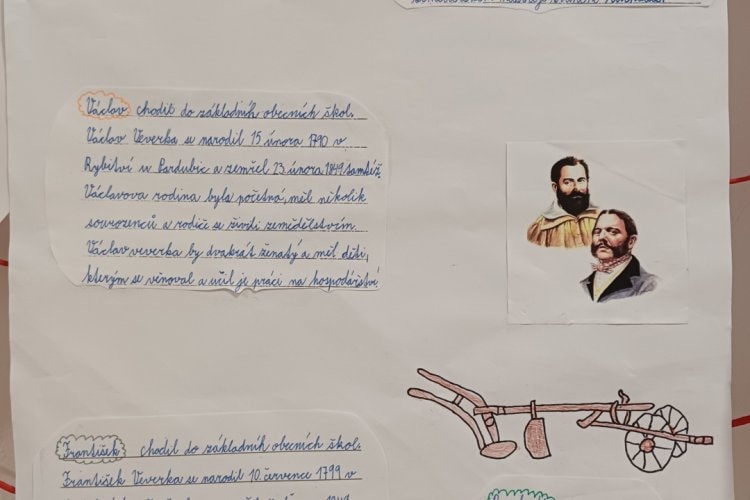 Václav chodil do základních obecních škol.
Václav Veverka se narodil 15 února 1790 v
Rybitví u Pardubic a zemřel 23 února 1849 tamtéž.
Václavova rodina byla početná, měl několik
sourozenců a rodiče se živili zemědělstvím.
Václav veverka by dvakrát ženatý a měl děti,
kterým se věnoval a učil je práci na hospodářství
František chodil do základních obecních škol.
František Veverka se narodil 10. července 1799 v